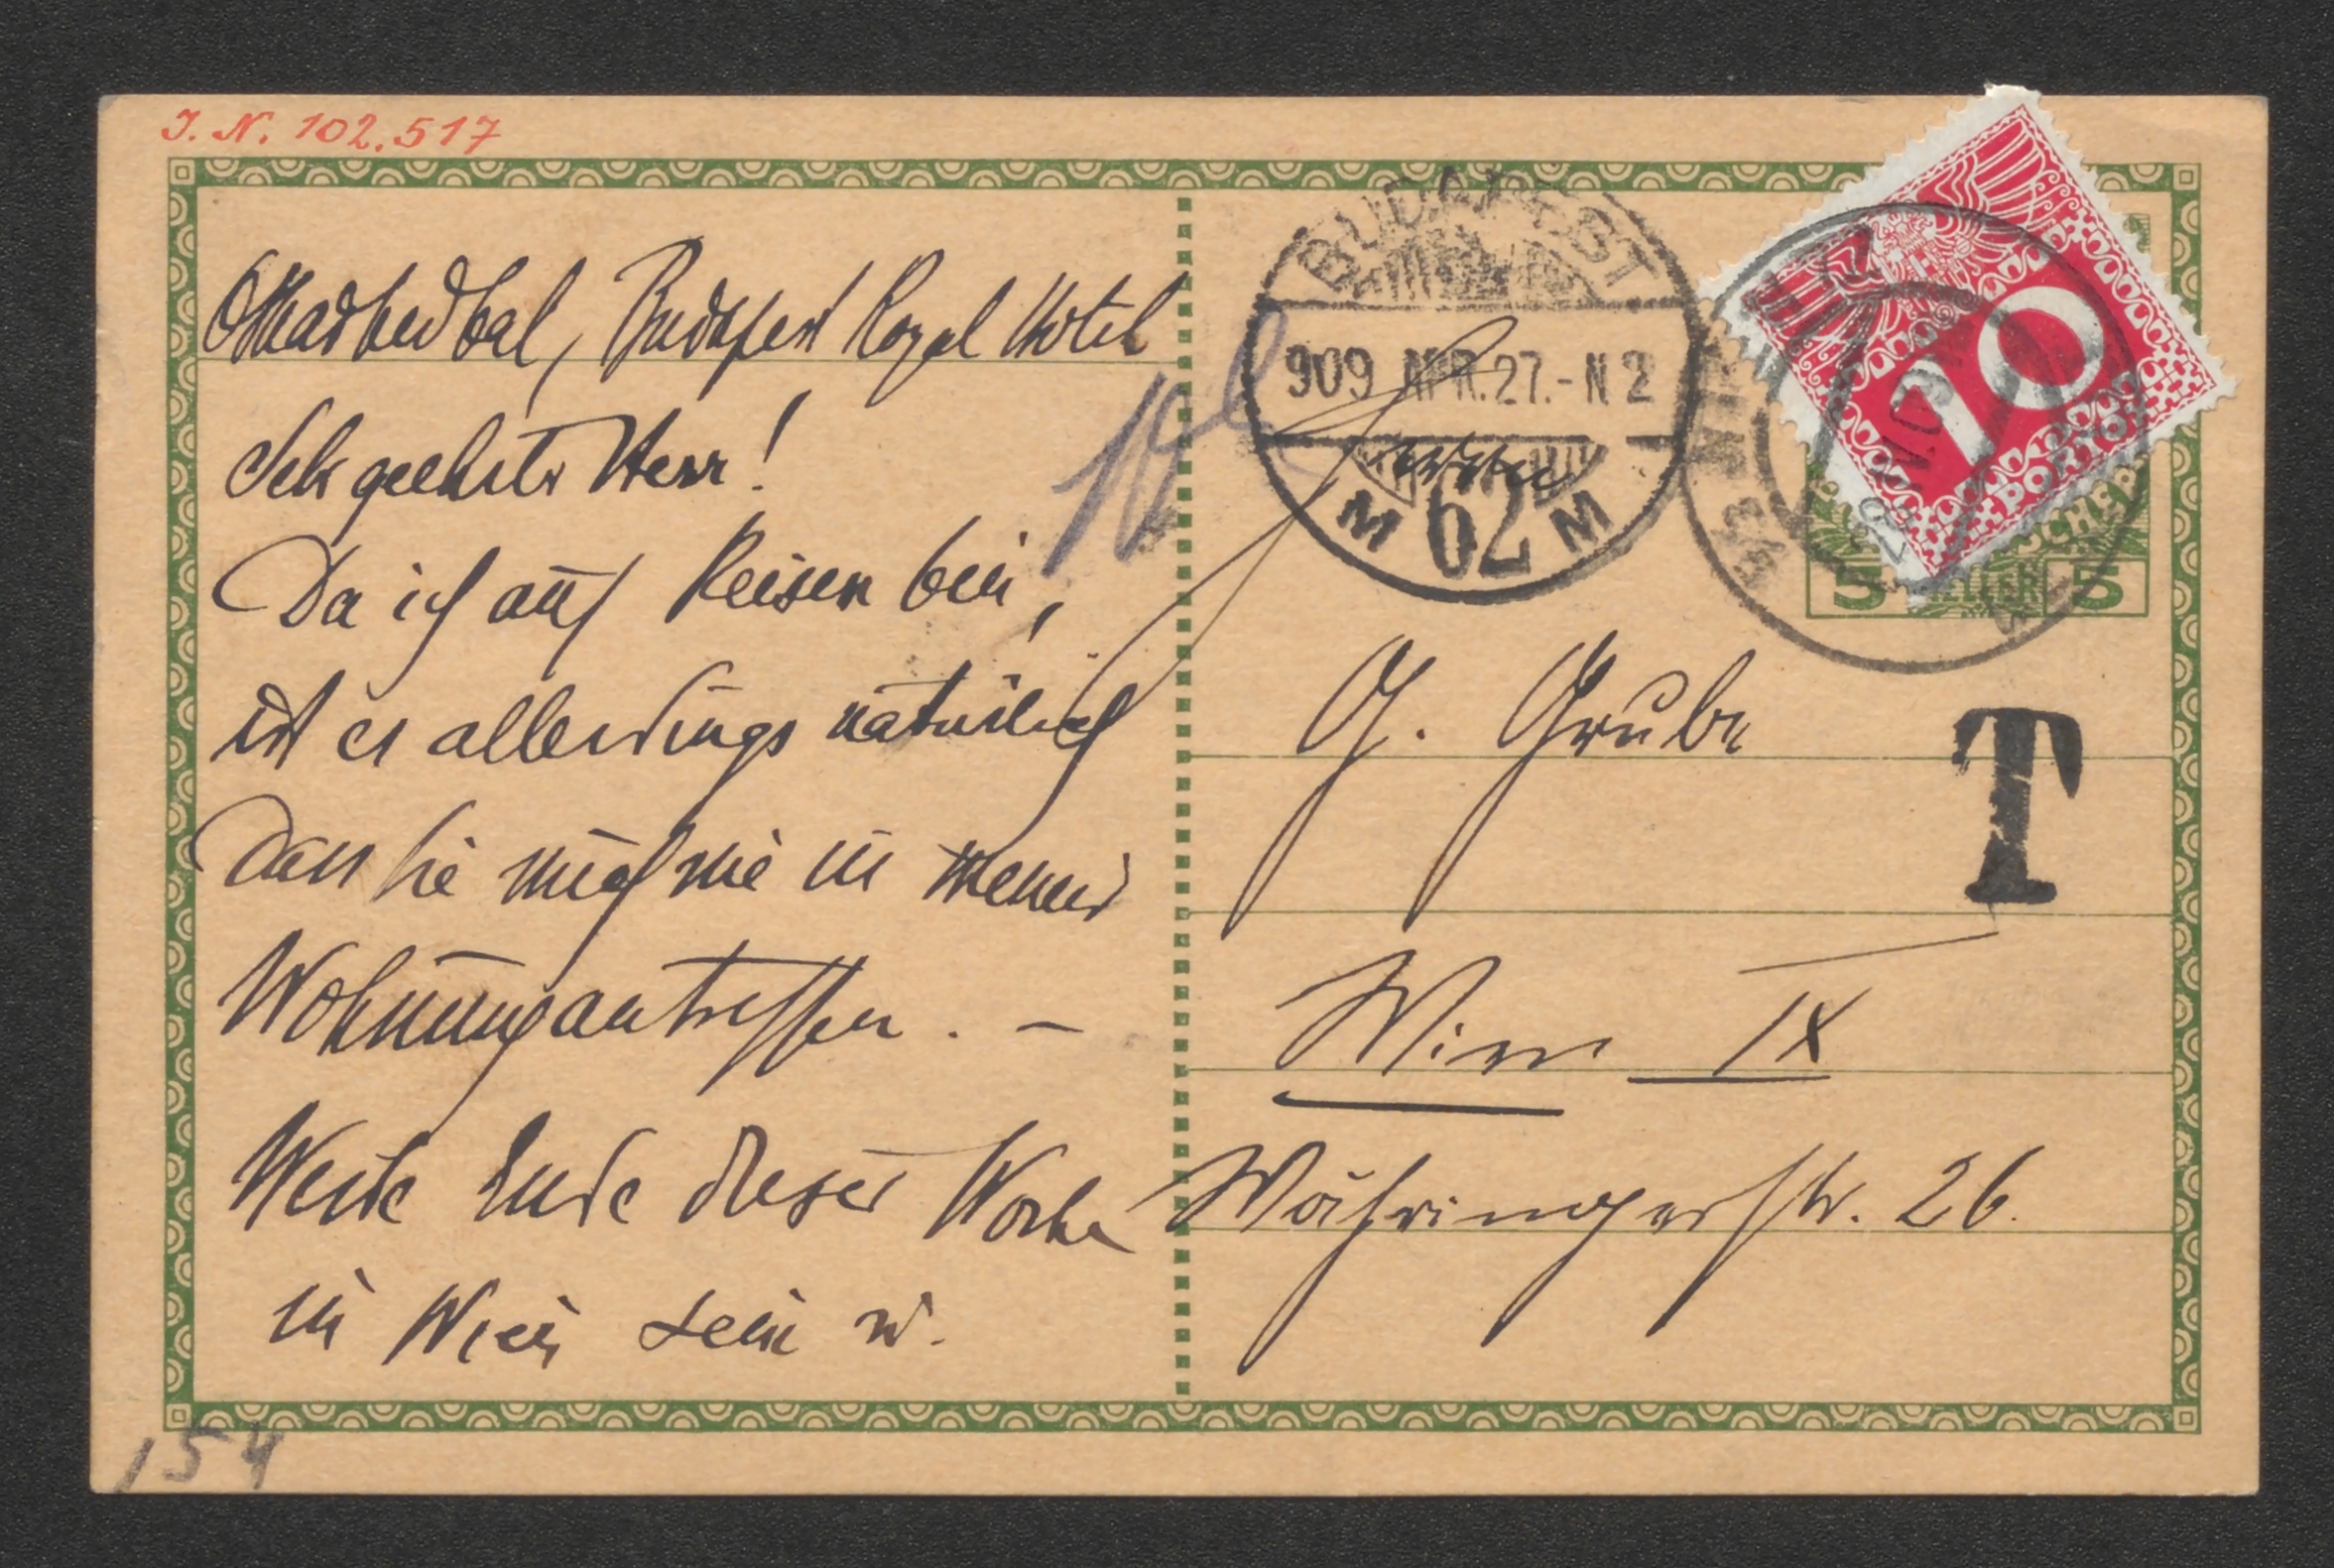 I. N. 102.517
Budapest Royal Hotel
Sehr geehrter Herr!
Da ich auf Reisen bin,
ist es allerdings natürlich
dass sie mich nie in meiner
Wohnung antreffen. –
Werde Ende dieser Woche
in Wien sein u.
154
BUDAPEST
909 APR. 27. - N 2
M 62 M
10
PORTO
WIEN
5 HELLER 5
T
G. Grube
Wien IX
Währingerstr. 26.